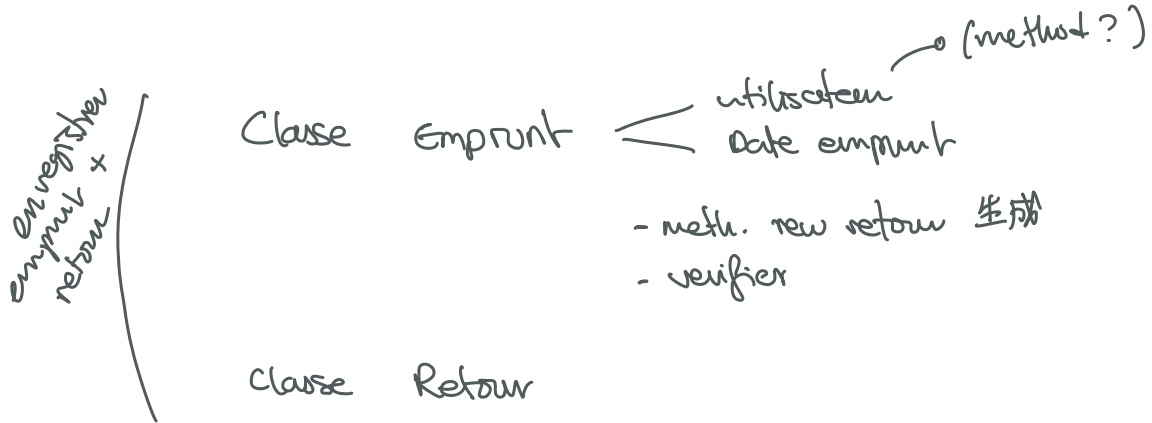 enregistrer
emprunt x
retour
Classe Emprunt
utilisateur
(method?)
Date emprunt
- meth. new retour 生成
- verifier
Classe Retour